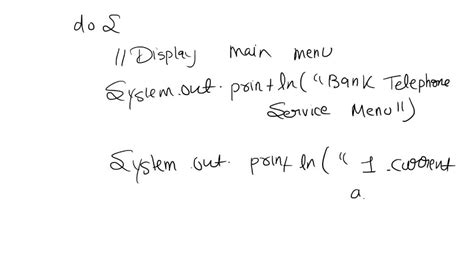 do {
// Display main menu
System.out.println("Bank Telephone
Service Menu")
System.out.println("1.current
a.